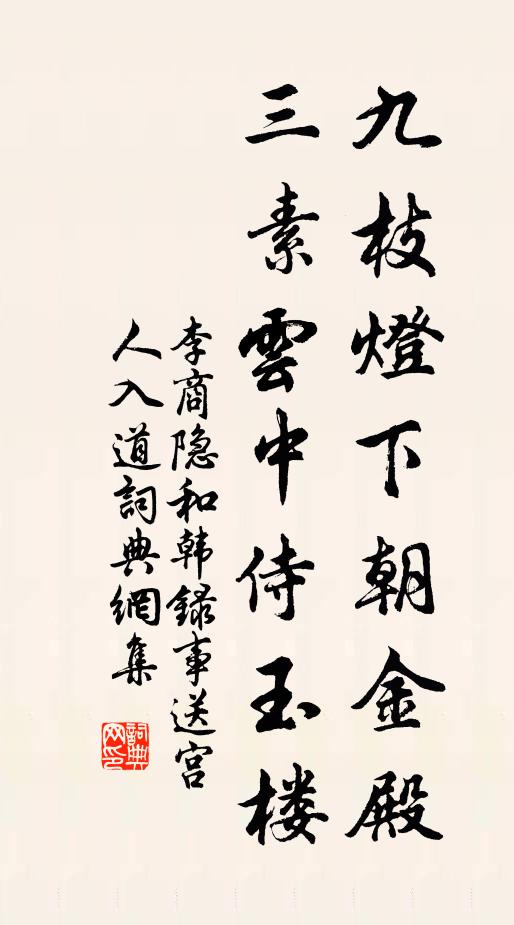 九枝燈下朝金殿
三素雲中侍玉楼
李商隐和韩録事送宫
人入道詞典網集
詞典
网印